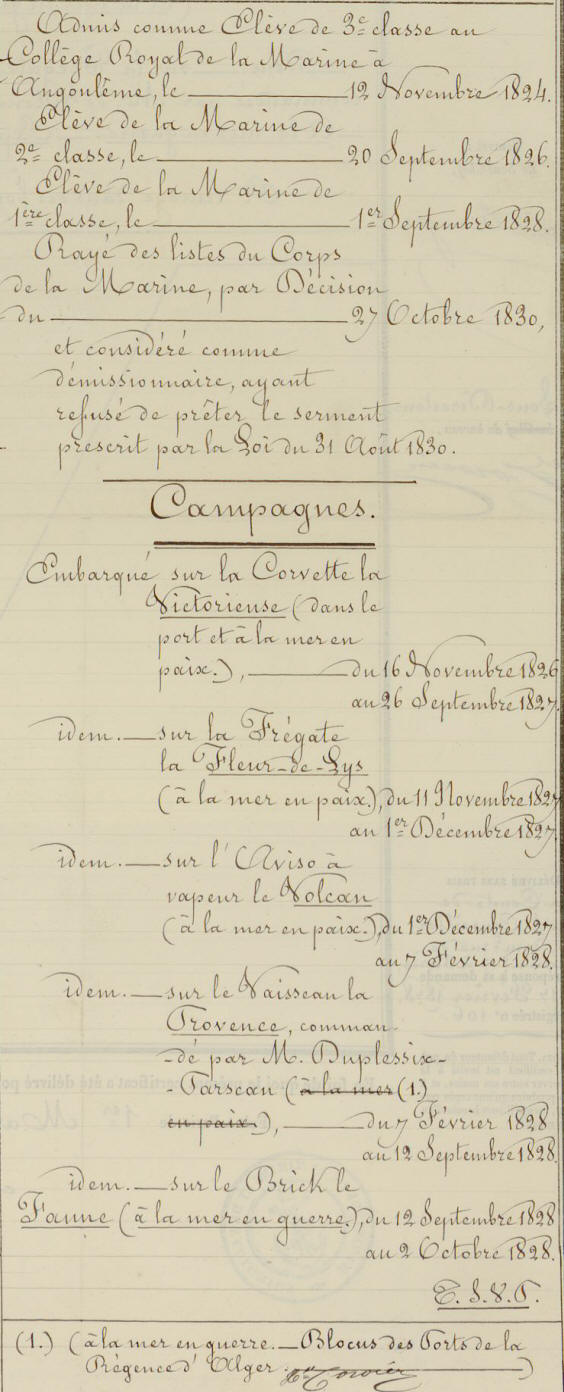 Admis comme Elève de 3e classe au
Collège Royal de la Marine à
Angoulême, le 12 Novembre 1824.
Elève de la Marine de
2e classe, le 20 Septembre 1826.
Elève de la Marine de
1ère classe, le 1er Septembre 1828.
Rayé des listes du Corps
de la Marine, par Décision
du 27 Octobre 1830,
et considéré comme
démissionnaire, ayant
refusé de prêter le serment
prescrit par la Loi du 31 Août 1830.
Campagnes.
Embarqué sur la Corvette la
Victorieuse (dans le
port et à la mer en
paix.), du 16 Novembre 1826
au 26 Septembre 1827.
idem. sur la Frégate
la Fleur-de-Lys
(à la mer en paix.), du 11 Novembre 1827
au 1er Décembre 1827.
idem. sur l'Aviso à
vapeur le Volcan
(à la mer en paix.), du 1er Décembre 1827
au 7 Février 1828.
idem. sur le Vaisseau la
Provence, comman-
-dé par M. Duplessix-
-Parscau (à la mer (1.)
en paix.), du 7 Février 1828
au 12 Septembre 1828.
idem. sur le Brick le
Faune (à la mer en guerre.), du 12 Septembre 1828
au 2 Octobre 1828.
T. S. V. P.
(1.) (à la mer en guerre. Blocus des Ports de la
Régence d'Alger.)